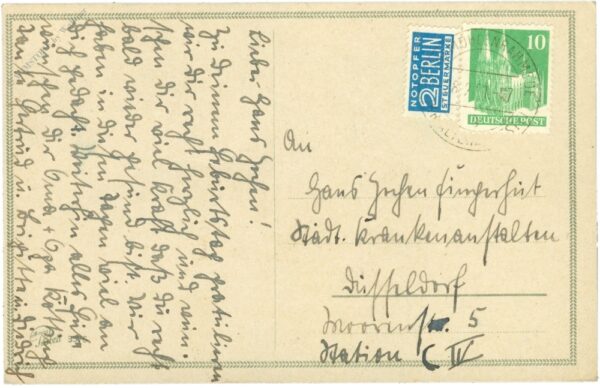 Lieber Hans Jochen!
Zu Deinem Geburtstag gratulieren
wir Dir recht herzlich und wün-
schen dir viel Kraft daß du recht
bald wieder gesund bist. Wir
haben in diesen Tagen viel an
dich gedacht. Weiterhin alles Gute
wünschen dir Oma + Opa
Tante Gertrud u. Brigitte u.
NOTOPFER
2 BERLIN
STEUERMARKE
10
DEUTSCHE POST
An
Hans Jochen Fingerhut
Städt. Krankenanstalten
Düsseldorf
Moorenstr. 5
Station C IV